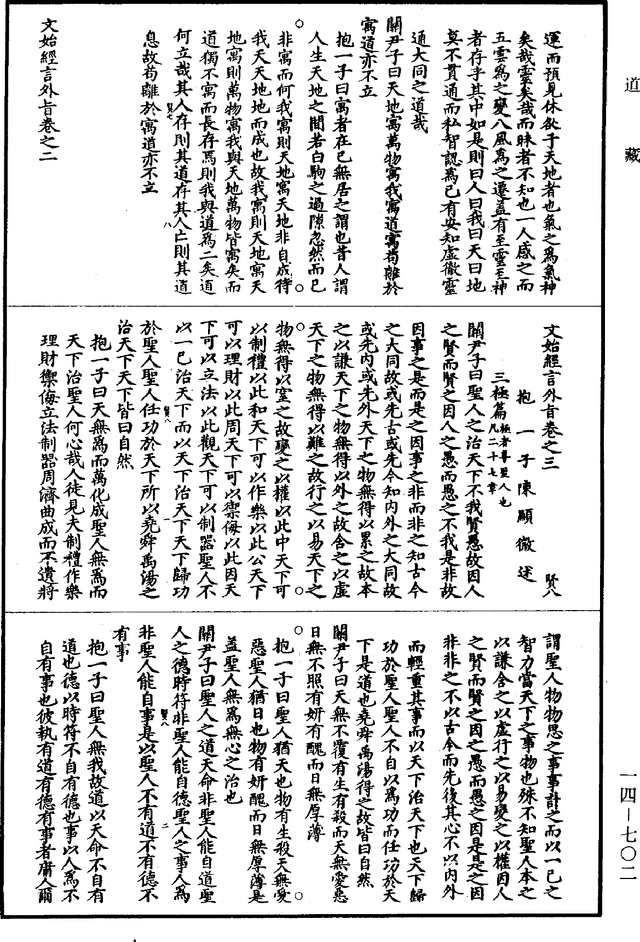 道藏
運而預見休咎于天地者也氣之為氣神
矣哉靈矣哉而昧者不知也一人感之而
五雲為之變八風為之遷蓋有至靈至神
者存乎其中如是則曰人曰我曰天曰地
莫不貫通而私智認為己有安知虛徹靈
通大同之道哉
關尹子曰天地寓萬物寓我寓道寓苟離於
寓道亦不立
抱一子曰寓者在己無居之謂也昔人謂
人生天地之間若白駒之過隙忽然而已
非寓而何我寓則天地寓天地非自成待
我天天地地而成也故我寓則天地寓天
地寓則萬物寓我與天地萬物皆寓矣而
道獨不寓而長存焉則我與道為二矣道
何立哉其人存則其道存其人亡則其道
息故苟離於寓道亦不立
文始經言外旨卷之二
文始經言外旨卷之三
賢八
抱一子陳顯微述
三極篇極者尊聖人也凡二十七章
關尹子曰聖人之治天下不我賢愚故因人
之賢而賢之因人之愚而愚之不我是非故
因事之是而是之因事之非而非之知古今
之大同故或先古或先今知內外之大同故
或先內或先外天下之物無得以累之故本
之以謙天下之物無得以外之故含之以虛
天下之物無得以難之故行之以易天下之
物無得以窒之故變之以權以此中天下可
以制禮以此和天下可以作樂以此公天下
可以理財以此周天下可以禦侮以此因天
下可以立法以此觀天下可以制器聖人不
以一己治天下而以天下治天下天下歸功
於聖人聖人任功於天下所以堯舜禹湯之
治天下天下皆曰自然
抱一子曰天無為而萬化成聖人無為而
天下治聖人何心哉人徒見夫制禮作樂
理財禦侮立法制器周濟曲成而不遺將
謂聖人物物思之事事計之而以一己之
智力當天下之事物也殊不知聖人本之
以謙含之以虛行之以易變之以權因人
之賢而賢之因之愚而愚之因是是之因
非非之不以古今而先後其心不以內外
而輕重其事而以天下治天下也天下歸
功於聖人聖人不自以為功而任功於天
下是道也堯舜禹湯得之故皆曰自然
關尹子曰天無不覆有生有殺而天無愛惡
日無不照有妍有醜而日無厚薄
抱一子曰聖人猶天也物有生殺天無愛
惡聖人猶日也物有妍醜而日無厚薄是
蓋聖人無為無心之治也
關尹子曰聖人之道天命非聖人能自道聖
人之德時符非聖人能自德聖人之事人為
非聖人能自事是以聖人不有道不有德不
有事
抱一子曰聖人無我故道以天命不自有
道也德以時符不自有德也事以人為不
自有事也彼執有道有德有事者庸人爾
一四－七〇二